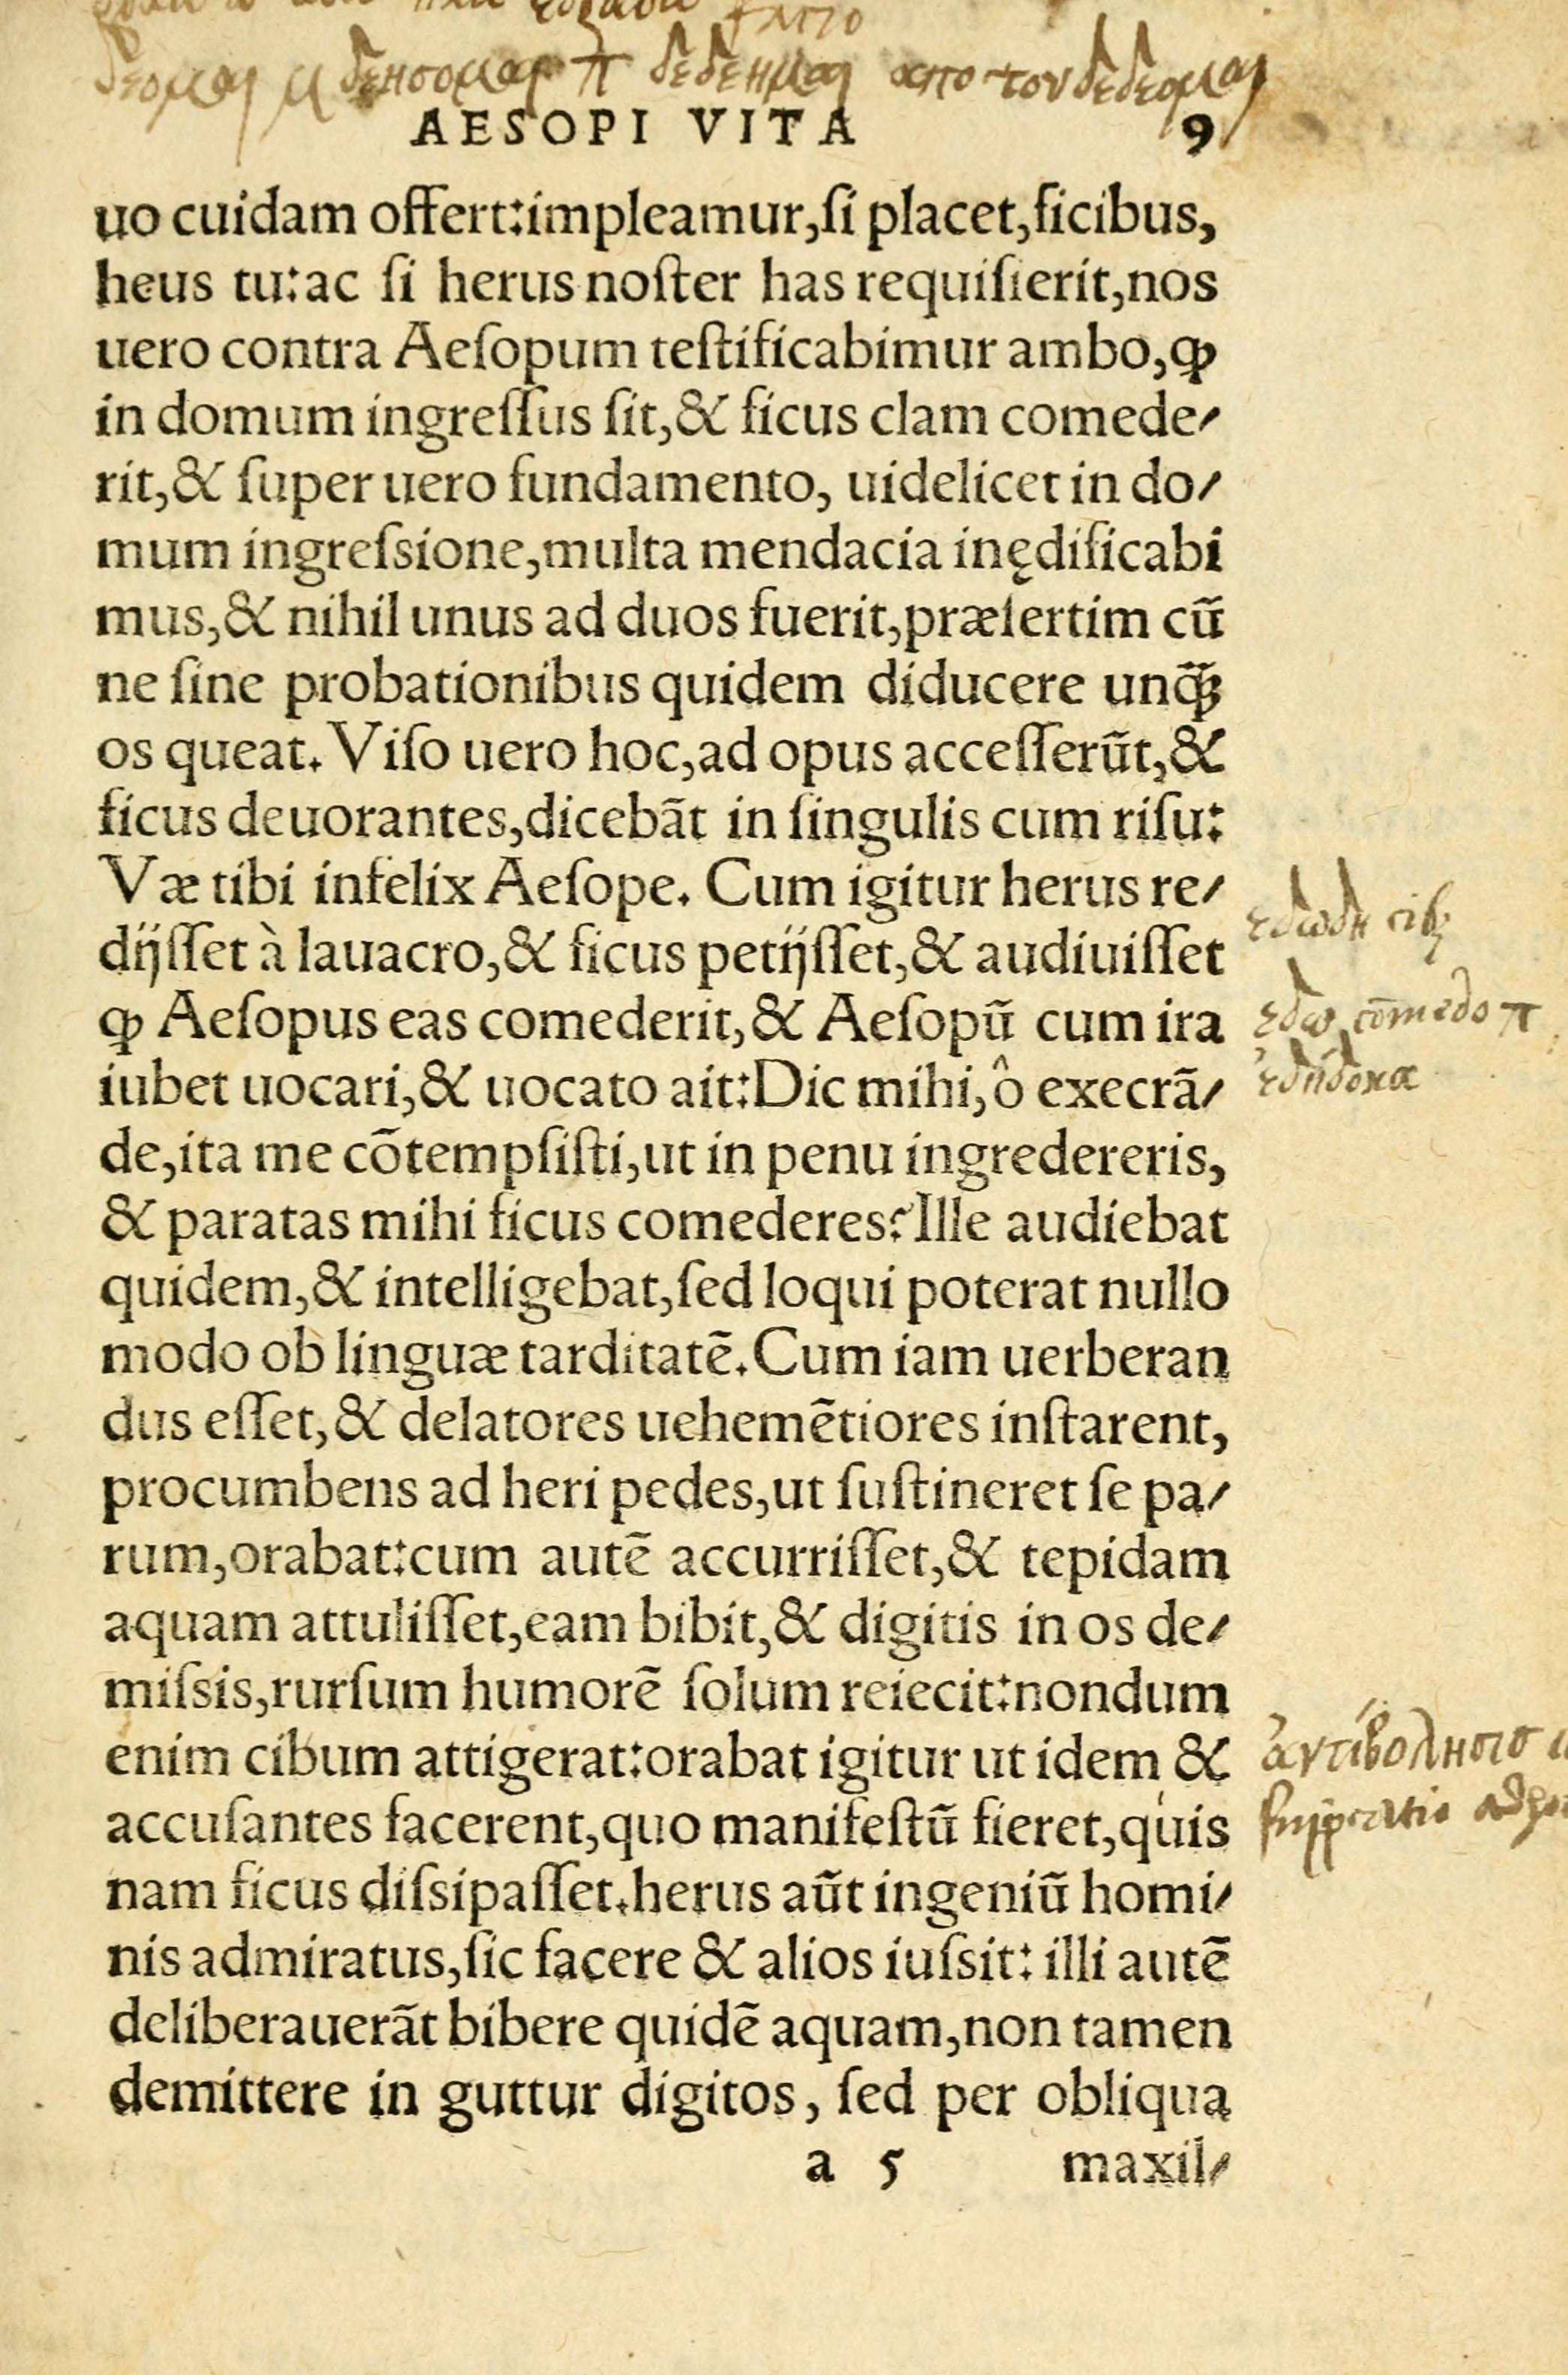 δεομαι μ δεησομαι π δεδεημαι απο του δεδεομαι
AESOPI VITA 9
uo cuidam offert:impleamur,ſi placet,ficibus,
heus tu:ac ſi herus noſter has requiſierit,nos
uero contra Aeſopum teſtificabimur ambo,ꝙ
in domum ingreſſus ſit,& ficus clam comede⸗
rit,& ſuper uero fundamento, uidelicet in do⸗
mum ingreſsione,multa mendacia inędificabi
mus,& nihil unus ad duos fuerit,præſertim cū
ne ſine probationibus quidem diducere unꝙ̃
os queat. Viſo uero hoc,ad opus acceſſerūt,&
ficus deuorantes,dicebāt in ſingulis cum riſu:
Væ tibi infelix Aeſope. Cum igitur herus re⸗
dijſſet à lauacro,& ficus petijſſet,& audiuiſſet
ꝙ Aeſopus eas comederit,& Aeſopū cum ira
iubet uocari,& uocato ait:Dic mihi,ô execrā⸗
de,ita me cōtempſiſti,ut in penu ingredereris,
& paratas mihi ficus comederes? Ille audiebat
quidem,& intelligebat,ſed loqui poterat nullo
modo ob linguæ tarditatē.Cum iam uerberan
dus eſſet,& delatores uehemētiores inſtarent,
procumbens ad heri pedes,ut ſuſtineret ſe pa⸗
rum,orabat:cum autē accurriſſet,& tepidam
aquam attuliſſet,eam bibit,& digitis in os de⸗
miſsis,rurſum humorē ſolum reiecit:nondum
enim cibum attigerat:orabat igitur ut idem &
accuſantes facerent,quo manifeſtū fieret,quis
nam ficus diſsipaſſet.herus aūt ingeniū homi⸗
nis admiratus,ſic facere & alios iuſsit: illi autē
deliberauerāt bibere quidē aquam,non tamen
demittere in guttur digitos, ſed per obliqua
a 5 maxil⸗
εδωδη cibꝫ
εδω cōmedo π
ἐδήδοκα
ἀντιβολησισ